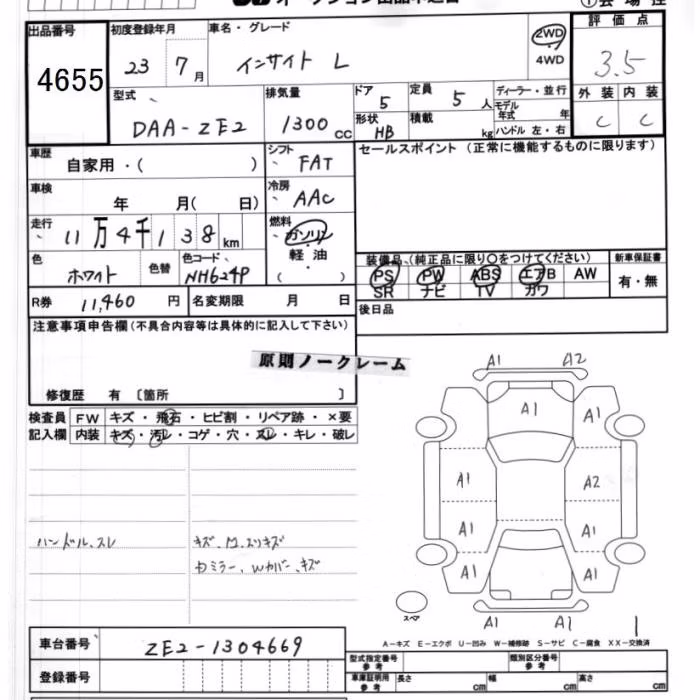 オークション出品申込書
①会場控
出品番号
4655
初度登録年月
23 7月
車名・グレード
インサイト L
2WD
4WD
評価点
3.5
型式
DAA-ZE2
排気量
1300 cc
ドア
5
定員
5 人
ディーラー・並行
モデル年式 年
形状
HB
積載 kg
ハンドル 左・右
外装 内装
C C
車歴
自家用・( )
シフト
FAT
セールスポイント (正常に機能するものに限ります)
車検
年 月( 日)
冷房
AAC
走行
11万4千138km
燃料
ガソリン
・
軽油
( )
色
ホワイト
色替
色コード
NH624P
装備品、(純正品に限り〇をつけてください)
新車保証書
PS PW ABS エアB AW
SR ナビ TV カワ
有・無
R券 11,460 円
名変期限 月 日
後日品
注意事項申告欄(不具合内容等は具体的に記入して下さい)
原則ノークレーム
修復歴 有 〔箇所 〕
検査員記入欄
FW キズ・飛石・ヒビ割・リペア跡・×要
内装 キズ・汚レ・コゲ・穴・スレ・キレ・破レ
ハンドル、スレ
A1 A2
A1
A1 A1
A1 A2
A1 A1
A1 A1
A1 A1
スペア
A-キズ E-エクボ U-凹み W-補修跡 S-サビ C-腐食 XX-交換済
車台番号
ZE2-1304669
登録番号
型式指定番号 参考
類別区分番号 参考
車庫証明用 参考
長さ cm
幅 cm
高さ cm